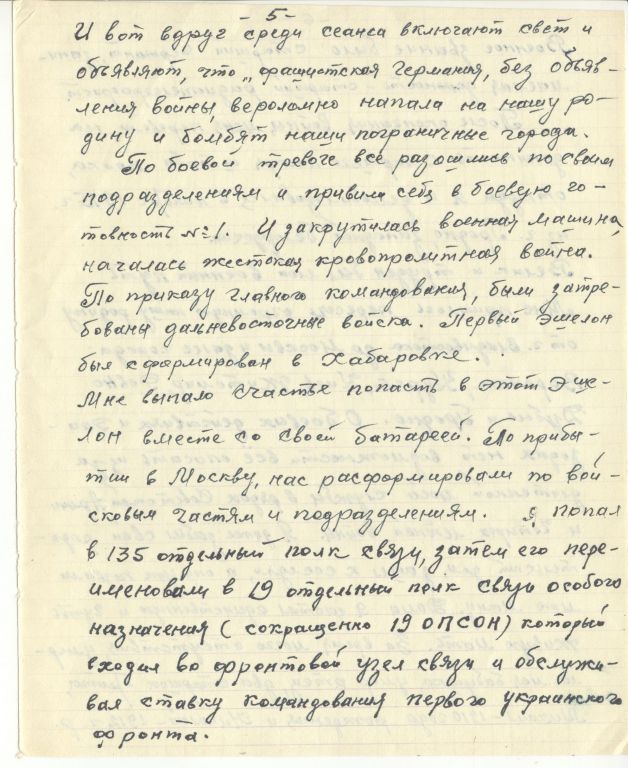 - 5 -
И вот вдруг среди сеанса включают свет и
объявляют, что „фашистская Германия, без объяв-
ления войны, вероломно напала на нашу ро-
дину и бомбят наши пограничные города.
По боевой тревоге все разошлись по своим
подразделениям и привили себя в боевую го-
товность №1. И закрутилась военная машина,
началась жестокая кровопролитная война.
По приказу главного командования, были затре-
бованы дальневосточные войска. Первый Эшелон
был сформирован в Хабаровке.
Мне выпало счастье попасть в этот Эше-
лон вместе со своей батареей. По прибы-
тии в Москву, нас расформировали по вой-
сковым частям и подразделениям. Я попал
в 135 отдельный полк связи, затем его пере-
именовали в 19 отдельный полк связи особого
назначения (сокращенно 19 ОПСОН) который
входил во фронтовой узел связи и обслужи-
вал ставку командования первого украинского
фронта.